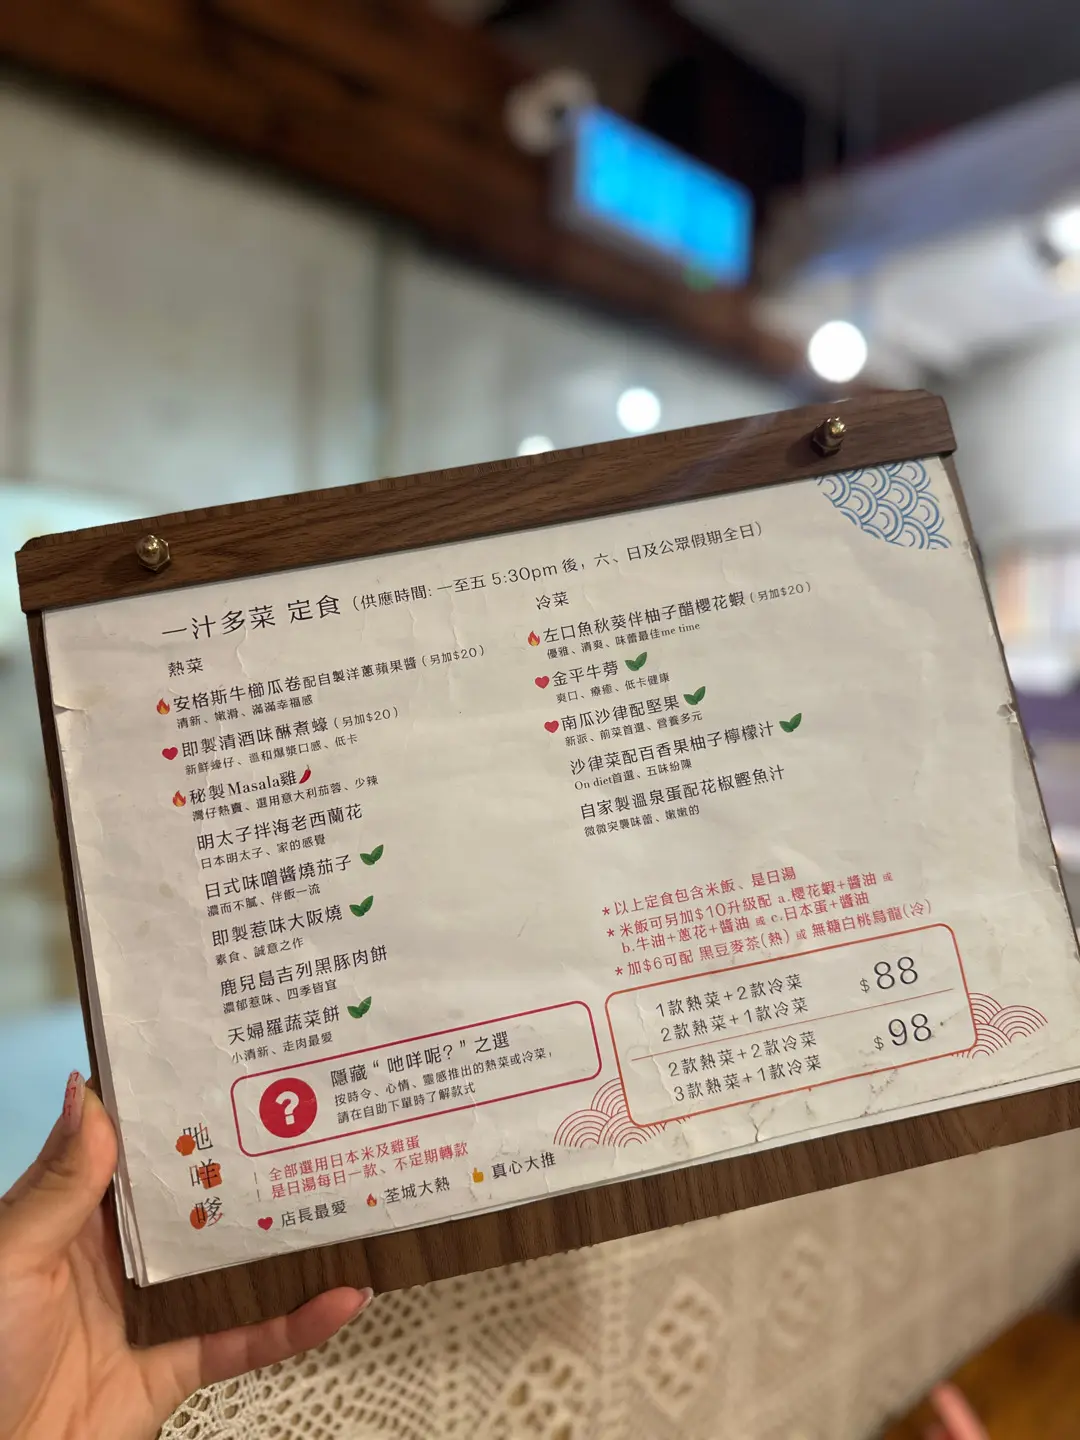 一汁多菜 定食 (供應時間: 一至五 5:30pm 後, 六、日及公眾假期全日)
熱菜
安格斯牛櫛瓜卷配自製洋蔥蘋果醬 (另加$20)
清新、嫩滑、滿滿幸福感
即製清酒味酥煮蠔 (另加$20)
新鮮蠔仔、溫和爆漿口感、低卡
秘製Masala雞
灣仔熱賣、選用意大利茄蓉、少辣
明太子拌海老西蘭花
日本明太子、家的感覺
日式味噌醬燒茄子
濃而不膩、伴飯一流
即製惹味大阪燒
素食、誠意之作
鹿兒島吉列黑豚肉餅
濃郁惹味、四季皆宜
天婦羅蔬菜餅
小清新、走肉最愛
冷菜
左口魚秋葵伴柚子醋櫻花蝦 (另加$20)
優雅、清爽、味蕾最佳me time
金平牛蒡
爽口、療癒、低卡健康
南瓜沙律配堅果
新派、前菜首選、營養多元
沙律菜配百香果柚子檸檬汁
On diet首選、五味紛陳
自家製溫泉蛋配花椒鰹魚汁
微微突襲味蕾、嫩嫩的
*以上定食包含米飯、是日湯
*米飯可另加$10升級配 a.櫻花蝦+醬油 或
b.牛油+蔥花+醬油 或 c.日本蛋+醬油
*加$6可配 黑豆麥茶(熱) 或 無糖白桃烏龍(冷)
1款熱菜+2款冷菜
2款熱菜+1款冷菜
$88
2款熱菜+2款冷菜
3款熱菜+1款冷菜
$98
?
隱藏“吔咩呢?”之選
按時令、心情、靈感推出的熱菜或冷菜,
請在自助下單時了解款式
吔
咩
嗲
| 全部選用日本米及雞蛋
| 是日湯每日一款、不定期轉款
店長最愛 荃城大熱 真心大推